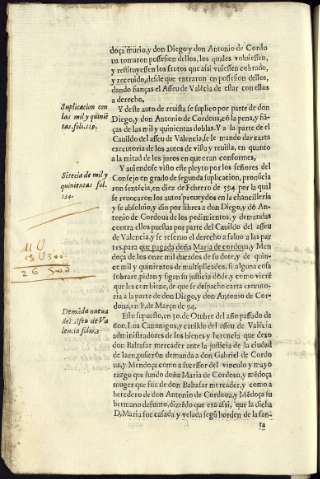 doça murio, y don Diego y don Antonio de Cordo
ua tomaron possession dellos, los quales voluiessen,
y restituyessen los frutos que assi vuiessen cobrado,
y recebido, desde que entraron en possession dellos,
dando fianças el Asseu de Valécia de estar con ellas
a derecho.
Suplicacion con
las mil y quinié
tas. fol.
Y deste auto de reuista se suplico por parte de don
Diego, y don Antonio de Cordoua, có la pena, y fiá-
ças de las mil y quinientas doblas. Y a la parte de el
Cauildo del asseu de Valencia, se le mando dar carta
executoria de los autos de vista y reuista, en quanto
a la mitad de los juros en que eran conformes.
Sétécia de mil y
quinientas fol.
Y auiendose visto este pleyto por los señores del
Consejo en grado de segunda suplicacion, pronúcia
ron sentécia, en diez de Febrero de 594 por la qual
se reuocaron los autos proueydos en la chancilleria
y se absoluio, y dio por libres a don Diego, y dó An-
tonio de Cordoua de los pedimientos, y demandas
contra ellos puestas por parte del Cauildo del asseu
de Valencia, y se reseruo el derecho a saluo a las par
tes, para que pagada doña Maria de cordoua, y Men
doça de los onze mil ducados de su dote, y de quin-
ze mil y quinientos de multiplicados, si alguna cosa
sobrare, pidan y sigan su justicia dóde, y como vieré
que les conuiene, de que se despacho carta executo-
ria a la parte de don Diego, y don Antonio de Cor-
doua, en 8. de Março de 94.
11 U
15 U 500
26 500
Demáda nueua
del Asseu de Va
lencia fol. 1.
Esto supuesto, en 30. de Otubre del año passado de
don Luis Camanigas, y cauildo del asseu de Valécia
administradores de los bienes y herencia que dexo
don Baltasar mercader ante la justicia de la ciudad
de Iaen, pusieron demanda a don Gabriel de Cordo
ua, y Mendoça como a suceßor del vinculo y mayo
razgo que fundo doña Maria de Cordoua, y médoça
muger que fue de don Baltasar mercader, y como a
heredero de don Antonio de Cordoua, y Médoça su
hermano defunto, diziédo que era assi, que la dicha
D. Maria fue casada y velada segú horden de la san-
ta